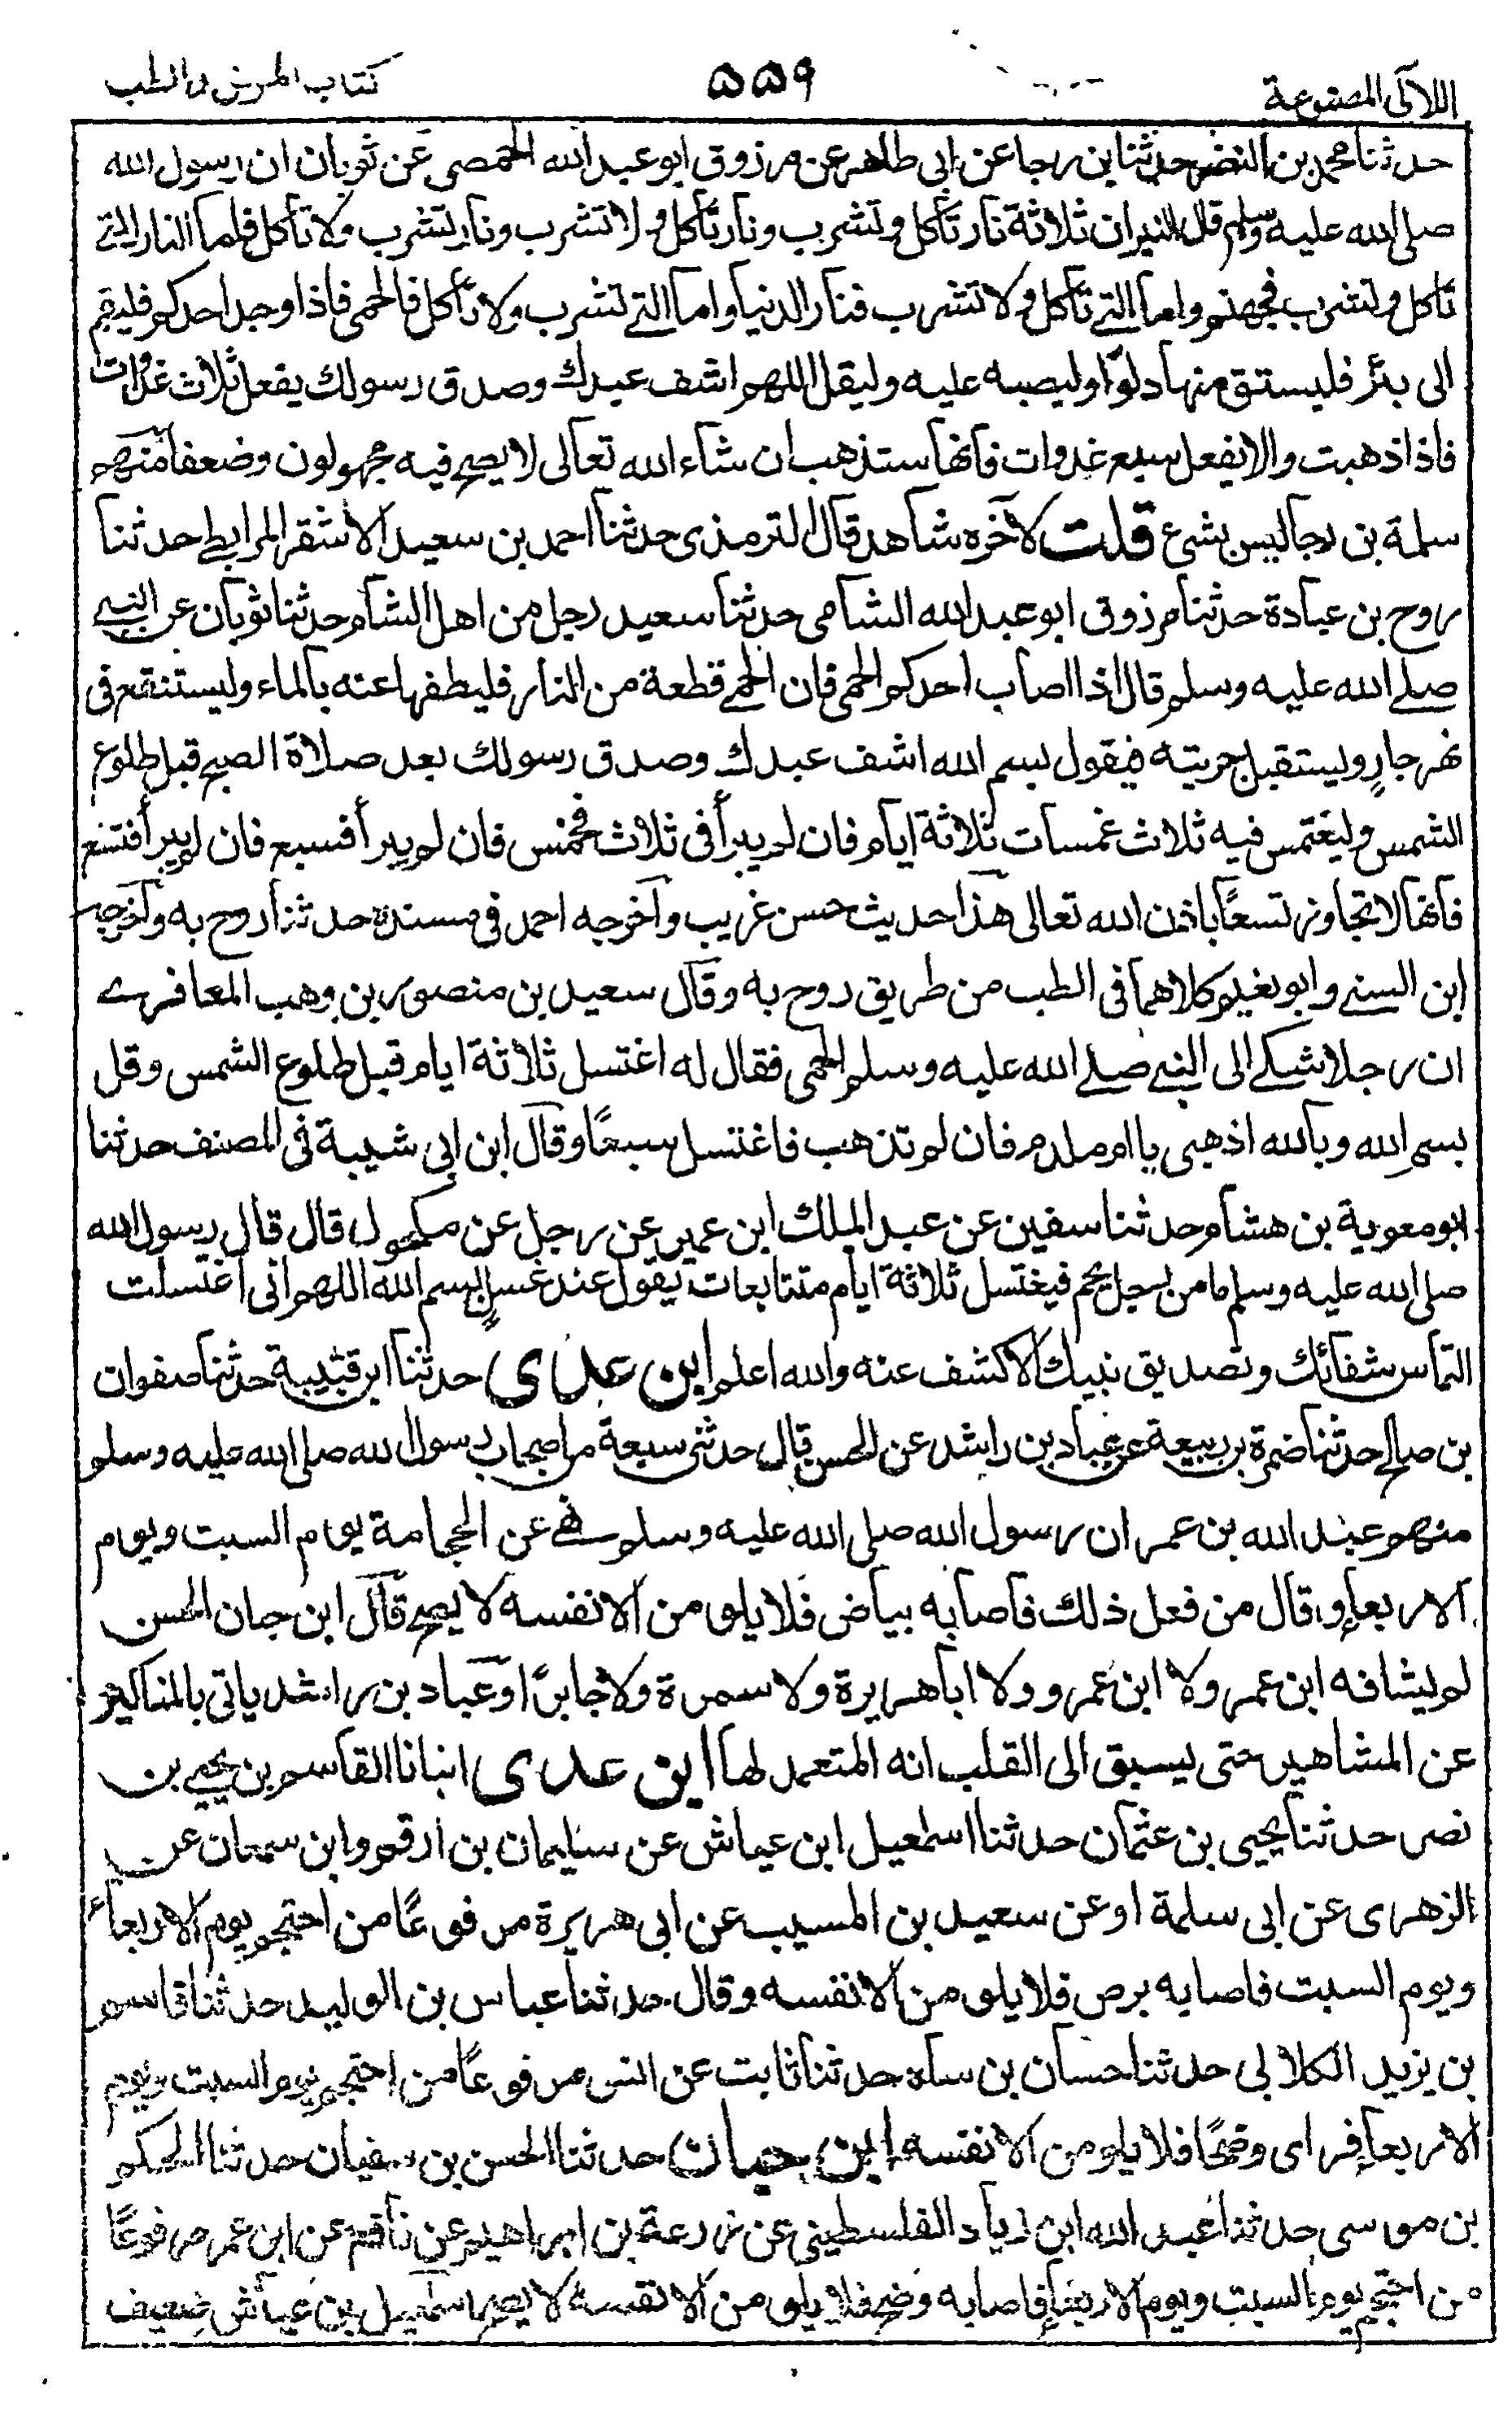 اللآلى المصنوعة
۵۵۹
كتاب المرض والطب
حدثنا محمد بن النضر حدثنا بن رجا عن ابى طاهر عن مرزوق ابو عبد الله الحمصى عن ثوبان ان رسول الله
صلى الله عليه وسلم قال النيران ثلاثة نار تأكل وتشرب ونار تأكل ولا تشرب ونار تشرب ولا تأكل فلما النار التے
تأكل وتشرب فجهنم واما التے تأكل ولا تشرب فنار الدنيا واما التے تشرب ولا تأكل فالحمى فاذا وجد احدكم فليقم
الى بئر فليستق منها دلوًا وليصبه عليه وليقل اللهم اشف عبدك وصدق رسولك يفعل ثلاث غدوات
فاذا ذهبت والا يفعل سبع غدوات فانها ستذهب ان شاء الله تعالى لا يصح فيه مجهولون وضعفا منهم
سلمة بن رجا ليس بشئ قلت لآخره شاهد قال الترمذى حدثنا احمد بن سعيد الاشقر المرابطى حدثنا
روح بن عبادة حدثنا مرزوق ابو عبد الله الشامى حدثنا سعيد رجل من اهل الشام حدثنا ثوبان عن النبے
صلے الله عليه وسلم قال اذا اصاب احدكم الحمى فان الحمے قطعة من النار فليطفها عنه بالماء وليستنقع فى
نهر جارٍ وليستقبل جريته فيقول بسم الله اشف عبدك وصدق رسولك بعد صلاة الصبح قبل طلوع
الشمس وليغتمس فيه ثلاث غمسات ثلاثة ايام فان لم يبرأ فى ثلاث فخمس فان لم يبرأ فسبع فان لم يبرأ فتسع
فانها لا تجاوز تسعًا باذن الله تعالى هذا حديث حسن غريب وآخرجه احمد فى مسنده حدثنا روح به وآخرجه
ابن السنے وابو نعيم كلاهما فى الطب من طريق روح به وقال سعيد بن منصور بن وهب المعافرے
ان رجلا شكے الى النبے صلے الله عليه وسلم الحمى فقال له اغتسل ثلاثة ايام قبل طلوع الشمس وقل
بسم الله وبالله اذهبى يا ام ملدم فان لم تذهب فاغتسل سبعًا وقال ابن ابى شيبة فى المصنف حدثنا
ابو معوية بن هشام حدثنا سفين عن عبد الملك ابن عمير عن رجل عن مكحول قال قال رسول الله
صلى الله عليه وسلم ما من رجل يحم فيغتسل ثلاثة ايام متتابعات يقول عند غسل بسم الله اللهم انى اغتسلت
التماس شفائك وتصديق نبيك الا كشف عنه والله اعلم ابن عدى حدثنا ابن قتيبة حدثنا صفوان
بن صالح حدثنا ضمرة بن ربيعة عن عباد بن راشد عن الحسن قال حدثنى سبعة من اصحاب رسول الله صلى الله عليه وسلم
منهم عبد الله بن عمر ان رسول الله صلى الله عليه وسلم نهى عن الحجامة يوم السبت ويوم
الاربعاء وقال من فعل ذلك فاصابه بياض فلا يلومن الا نفسه لا يصح قال ابن حبان الحسن
لم يشافه ابن عمر ولا ابن عمرو ولا ابا هريرة ولا سمرة ولا جابرًا وعباد بن راشد ياتى بالمناكير
عن المشاهير حتى يسبق الى القلب انه المتعمد لها ابن عدى انبانا القاسم بن يحيے بن
نصر حدثنا يحيى بن عثمان حدثنا اسمعيل ابن عياش عن سليمان بن ارقم وابن سمعان عن
الزهرى عن ابى سلمة او عن سعيد بن المسيب عن ابى هريرة مرفوعًا من احتجم يوم الاربعاء
ويوم السبت فاصابه برص فلا يلومن الا نفسه وقال حدثنا عباس بن الوليد حدثنا قاسم
بن يزيد الكلابى حدثنا حسان بن سياه حدثنا ثابت عن انس مرفوعًا من احتجم يوم السبت ويوم
الاربعاء فراى وضحًا فلا يلومن الا نفسه ابن حبان حدثنا الحسن بن سفيان حدثنا الحكم
بن موسى حدثنا عبد الله ابن زياد الفلسطينى عن زرعة بن ابراهيم عن نافع عن ابن عمر مرفوعًا
من احتجم يوم السبت ويوم الاربعاء فاصابه وضح فلا يلومن الا نفسه لا يصح اسمعيل بن عياش ضعيف